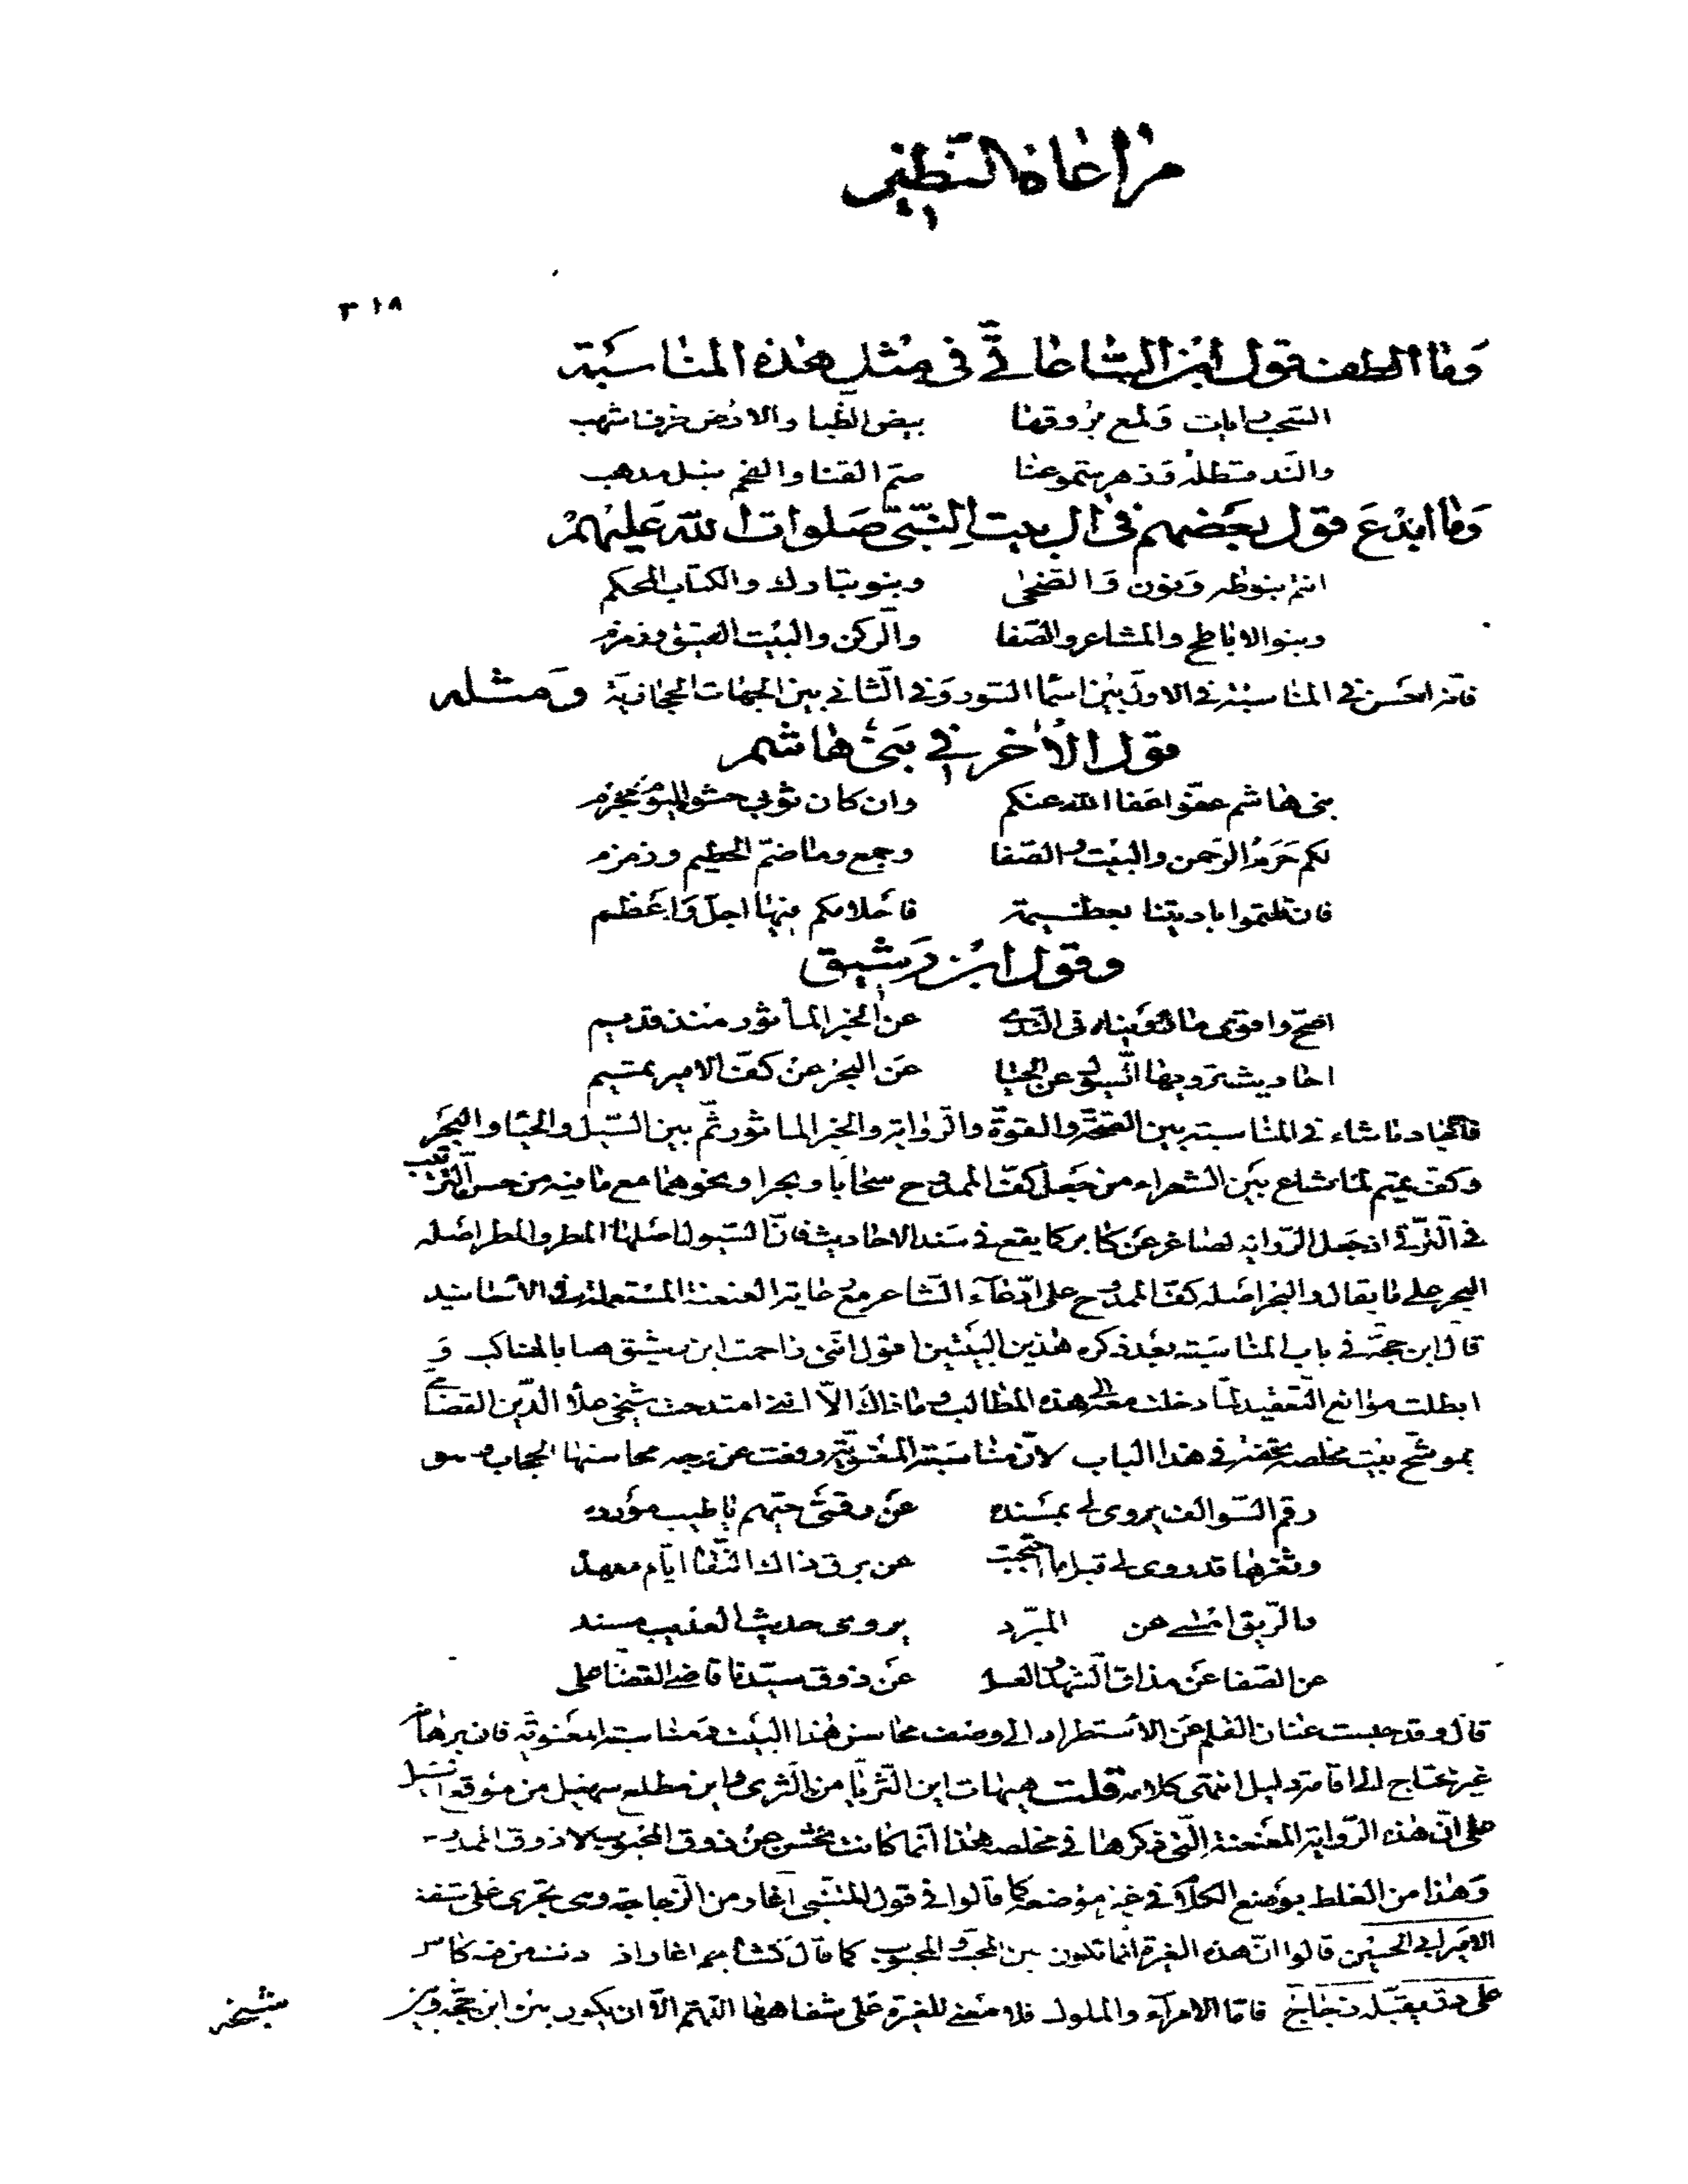 مراعاة النظير
٣١٨
وما الطف قول ابن الساعاتي في مثل هذه المناسبة
السحب رايات ولمع بروقها بيض الظبا والارض طرف اشهب
والند قسطله وزهر شموعنا صم القنا والفحم نبل مذهب
وما ابدع قول بعضهم في ال بيت النبي صلوات الله عليهم
انتم بنو طه ونون والضحى وبنو تبارك والكتاب المحكم
وبنو الاباطح والمشاعر والصفا والركن والبيت العتيق وزمزم
فانه احسن في المناسبة في الاول بين اسما السور وفي الثاني بين الجهات الحجازية ومثله
قول الاخر في بني هاشم
بني هاشم عفوا عفا الله عنكم وان كان ثوبي حشو
لكم حرم الرحمن والبيت والصفا وجمع وما ضم الحطيم وزمزم
فان قلتموا بادهتنا بعظيمة فاحلامكم منها اجل واعظم
وقول ابن رشيق
اصح واقوى ما رويناه في الندى عن الخبر الماثور منذ قديم
احاديث ترويها السيول عن الحيا عن البحر عن كف الامير تميم
ما شاء في المناسبة بين الصحة والقوة والرواية والخبر الماثور ثم بين السيل والحيا والبحر
وكف تميم لما شاع بين الشعراء من جعل كف الممدوح سحابا وبحرا ونحوهما مع ما فيه من حسن الترتيب
في الترقي اذ جعل الرواية لصاغر عن كابر كما يقع في سند الاحاديث فان السيول اصلها المطر والمطر اصله
البحر على ما يقال والبحر اصله كف الممدوح على ادعاء الشاعر مع رعاية العنعنة المستعملة في الاسانيد
قال ابن حجة في باب المناسبة بعد ذكره هذين البيتين اقول انني زاحمت ابن رشيق هنا بالمناكب و
ابطلت موانع التعقيد لما دخلت معه الى هذه المطالب وما ذاك الا انني امتدحت شيخي علاء الدين القضامي
بموشح بيت مخلصه تحفة في هذا الباب لان مناسبته المعنوية رفعت عن وجه محاسنها الحجاب وهو
رقم السوالف يروي لي بمسنده عن رقمتي حيهم يا طيب مورده
وثغرها قد روى لي قبل ما احتجبت عن برق ذاك النقا ايام معهده
والريق امسى عن المبرد يروي حديث العذيب مسند
عن الصفا عن مذاق الشهد والعسل عن ذوق سيدنا قاضي القضا علي
قال وقد حبست عنان القلم عن الاستطراد الى وصف محاسن هذا البيت ومناسبته المعنوية فان برهانه
غير محتاج الى اقامة دليل انتهى كلامه قلت هيهات اين الثريا من الثرى واين مطلع سهيل من موقع السيل
على ان هذه الرواية المعنعنة التي ذكرها في مخلصه هذا انما كانت تحسن عن ذوق المحبوب لا ذوق
وهذا من الغلط بوضع الكلام في غير موضعه كما قالوا في قول المتنبي اغار من الزجاجة وهي تجري على شفة
الامير ابي الحسين قالوا ان هذه الغيرة انما تكون بين المحب والمحبوب كما قال كشاجم اغار اذا دنت من فيه كاس
على در يقبله زجاج فاما الامراء والملوك فلا معنى للغيرة على شفاهها اللهم الا ان يكون بين ابن حجة وبين
شيخه